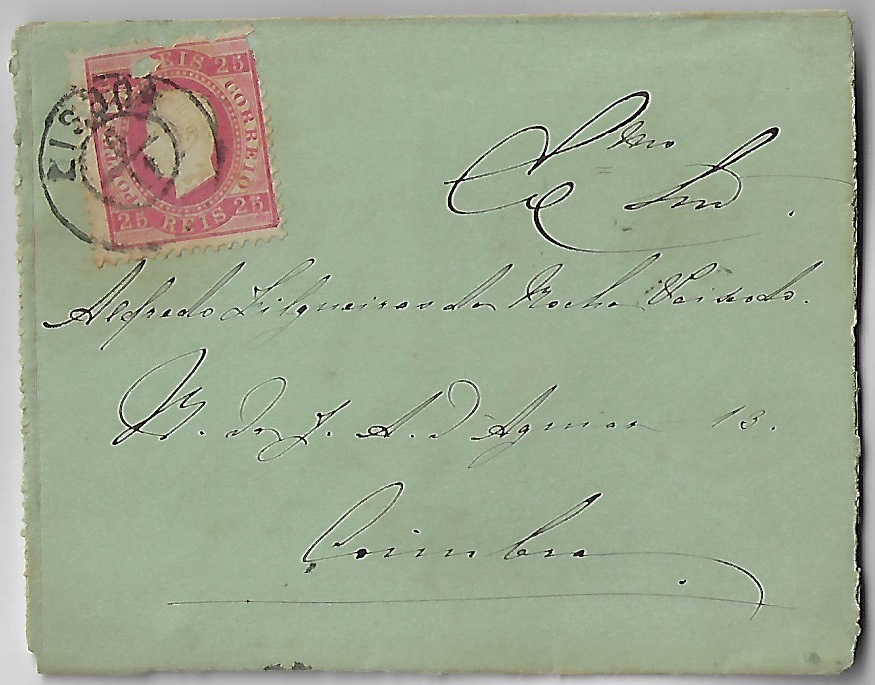 REIS 25
CORREIO
25 REIS 25
LISBOA
Exmo Snr.
Alfredo Filgueiras da Rocha Peixoto.
R. de J. A. d'Aguiar 13.
Coimbra.